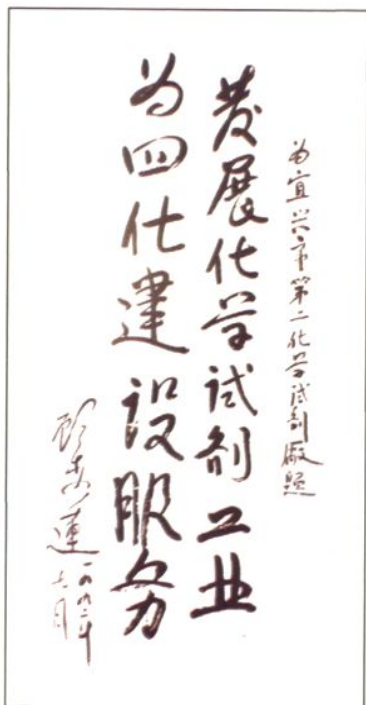 为宜兴市第二化学试剂厰题
发展化学试剂工业
为四化建设服务
顾秀莲
一九九二年
六月